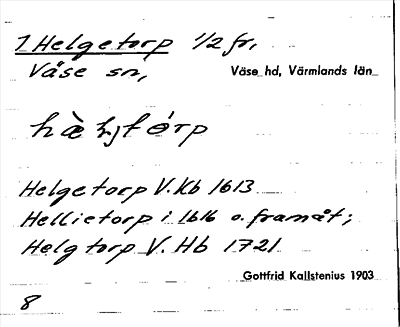 1 Helgetorp 1/2 fr.
Väse sn, Väse hd, Värmlands län
Helgetorp V. Kb 1613
Hellietorp i. 1616 o. framåt;
Helgtorp V. Hb 1721
Gottfrid Kallstenius 1903
8